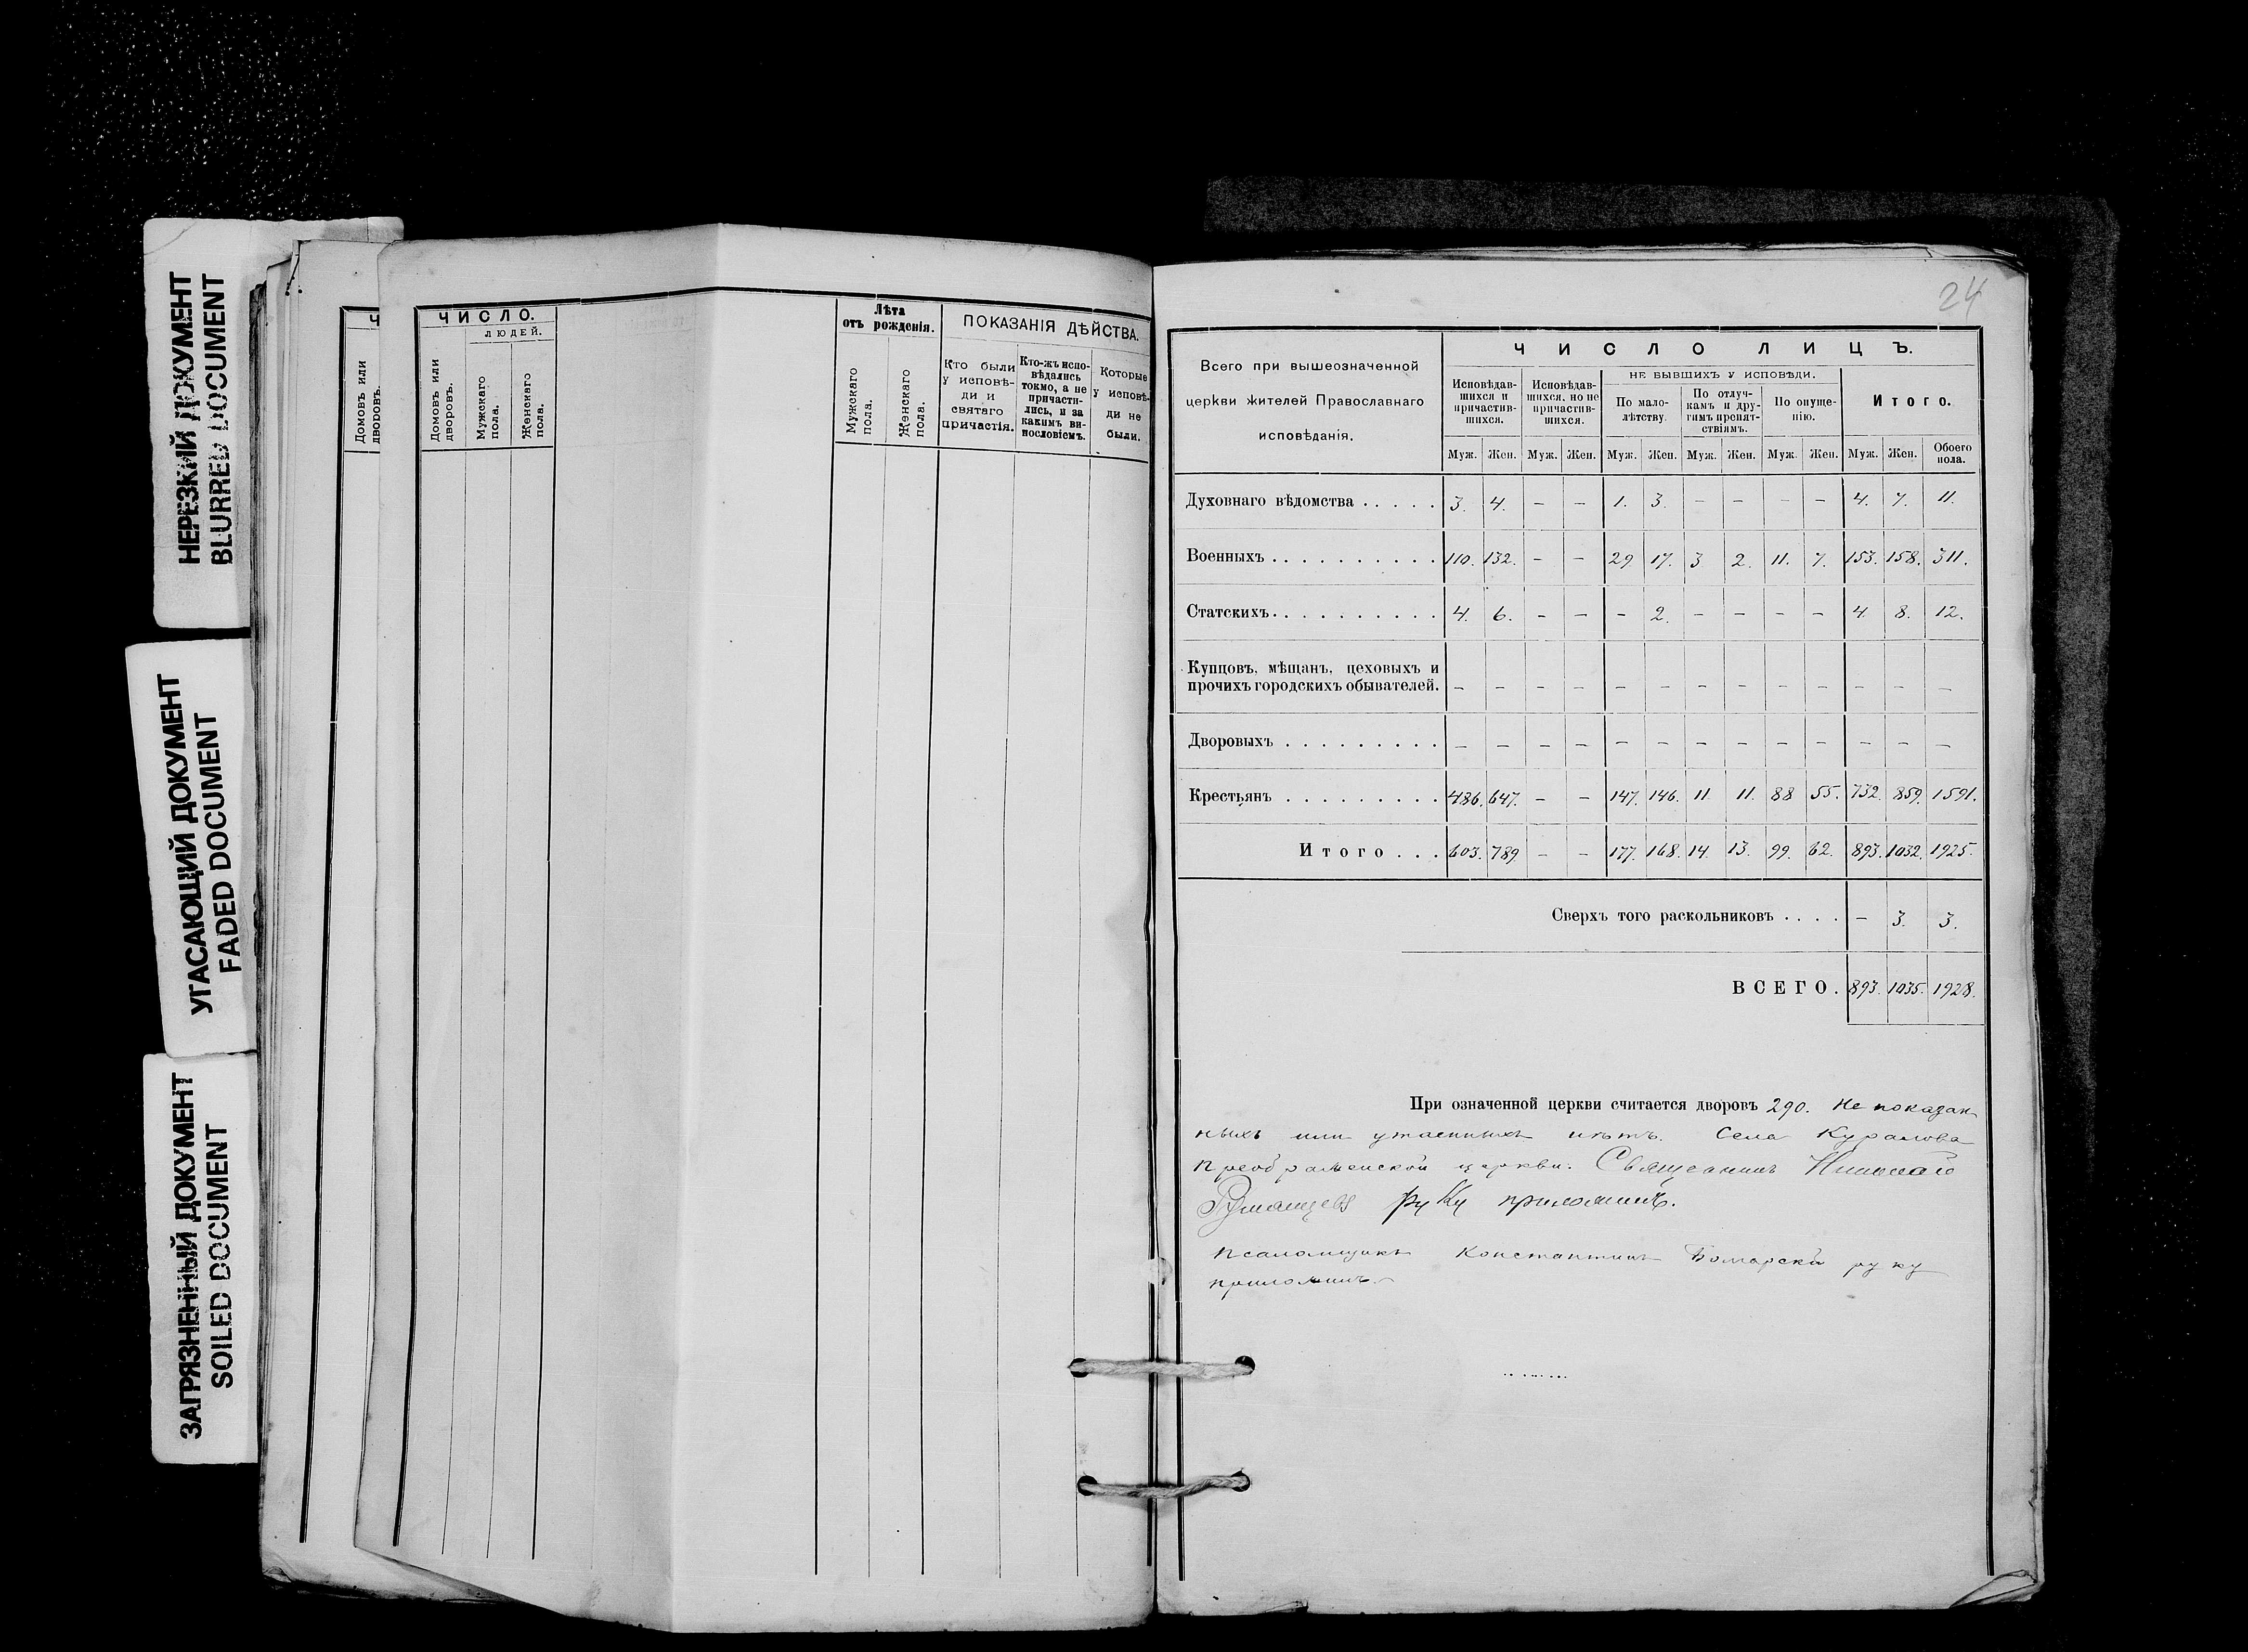 НЕРЕЗКИЙ ДОКУМЕНТ
BLURRED DOCUMENT
УГАСАЮЩИЙ ДОКУМЕНТ
FADED DOCUMENT
ЗАГРЯЗНЕННЫЙ ДОКУМЕНТ
SOILED DOCUMENT
Ч
Домовъ или
дворовъ.
ЧИСЛО.
ЛЮДЕЙ.
Домовъ или
дворовъ.
Мужскаго
пола.
Женскаго
пола.
Лѣта
отъ рожденія.
Мужскаго
пола.
Женскаго
пола.
ПОКАЗАНІЯ ДѢЙСТВА.
Кто были
у исповѣ-
ди и
святаго
причастія.
Кто-жъ испо-
вѣдались
токмо, а не
причасти-
лись, и за
какимъ ви-
нословіемъ.
Которые
у исповѣ-
ди не
были.
24
Всего при вышеозначенной
церкви жителей Православнаго
исповѣданія.
ЧИСЛО ЛИЦЪ.
Исповѣдав-
шихся и
причастив-
шихся.
Исповѣдав-
шихся, но не
причастив-
шихся.
НЕ БЫВШИХЪ У ИСПОВѢДИ.
По мало-
лѣтству.
По отлуч-
камъ и дру-
гимъ препят-
ствіямъ.
По опуще-
нію.
Итого.
Муж. Жен. Муж. Жен. Муж. Жен. Муж. Жен. Муж. Жен. Муж. Жен. Обоего пола.
Духовнаго вѣдомства . . . . . 3. 4. – – 1. 3. – – – – 4. 7. 11.
Военныхъ . . . . . . . . . . 110. 132. – – 29 17. 3 2. 11. 7. 153. 158. 311.
Статскихъ . . . . . . . . . . 4. 6. – – – 2. – – – – 4. 8. 12.
Купцовъ, мѣщанъ, цеховыхъ и
прочихъ городскихъ обывателей. – – – – – – – – – – – – –
Дворовыхъ . . . . . . . . . – – – – – – – – – – – – –
Крестьянъ . . . . . . . . . 486. 647. – – 147. 146. 11. 11. 88 55. 732. 859. 1591.
Итого . . . 603. 789 – – 177. 168. 14. 13. 99. 62. 893. 1032. 1925.
Сверхъ того раскольниковъ . . . . – 3. 3.
ВСЕГО. 893. 1035. 1928.
При означенной церкви считается дворовъ 290. Не показан
ныхъ или утаенныхъ нѣтъ. Села Курапова
Преображенской церкви: Священникъ Николай
Румянцевъ руку приложилъ.
Псаломщикъ Константинъ руку
приложилъ.